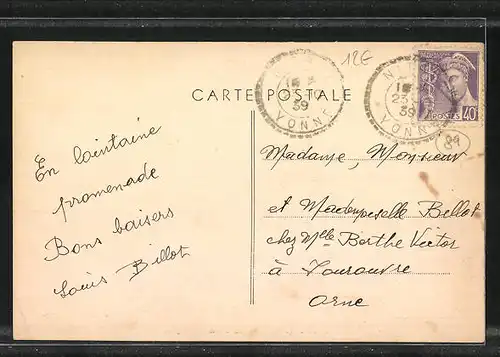 12€
CARTE POSTALE
39
YONNE
23
39
YONNE
POSTES
40
89
En lointaine
promenade
Bons baisers
Louis Billot
Madame, Monsieur
et Mademoiselle Billot
chez Mlle Berthe Victor
à Tourouvre
Orne